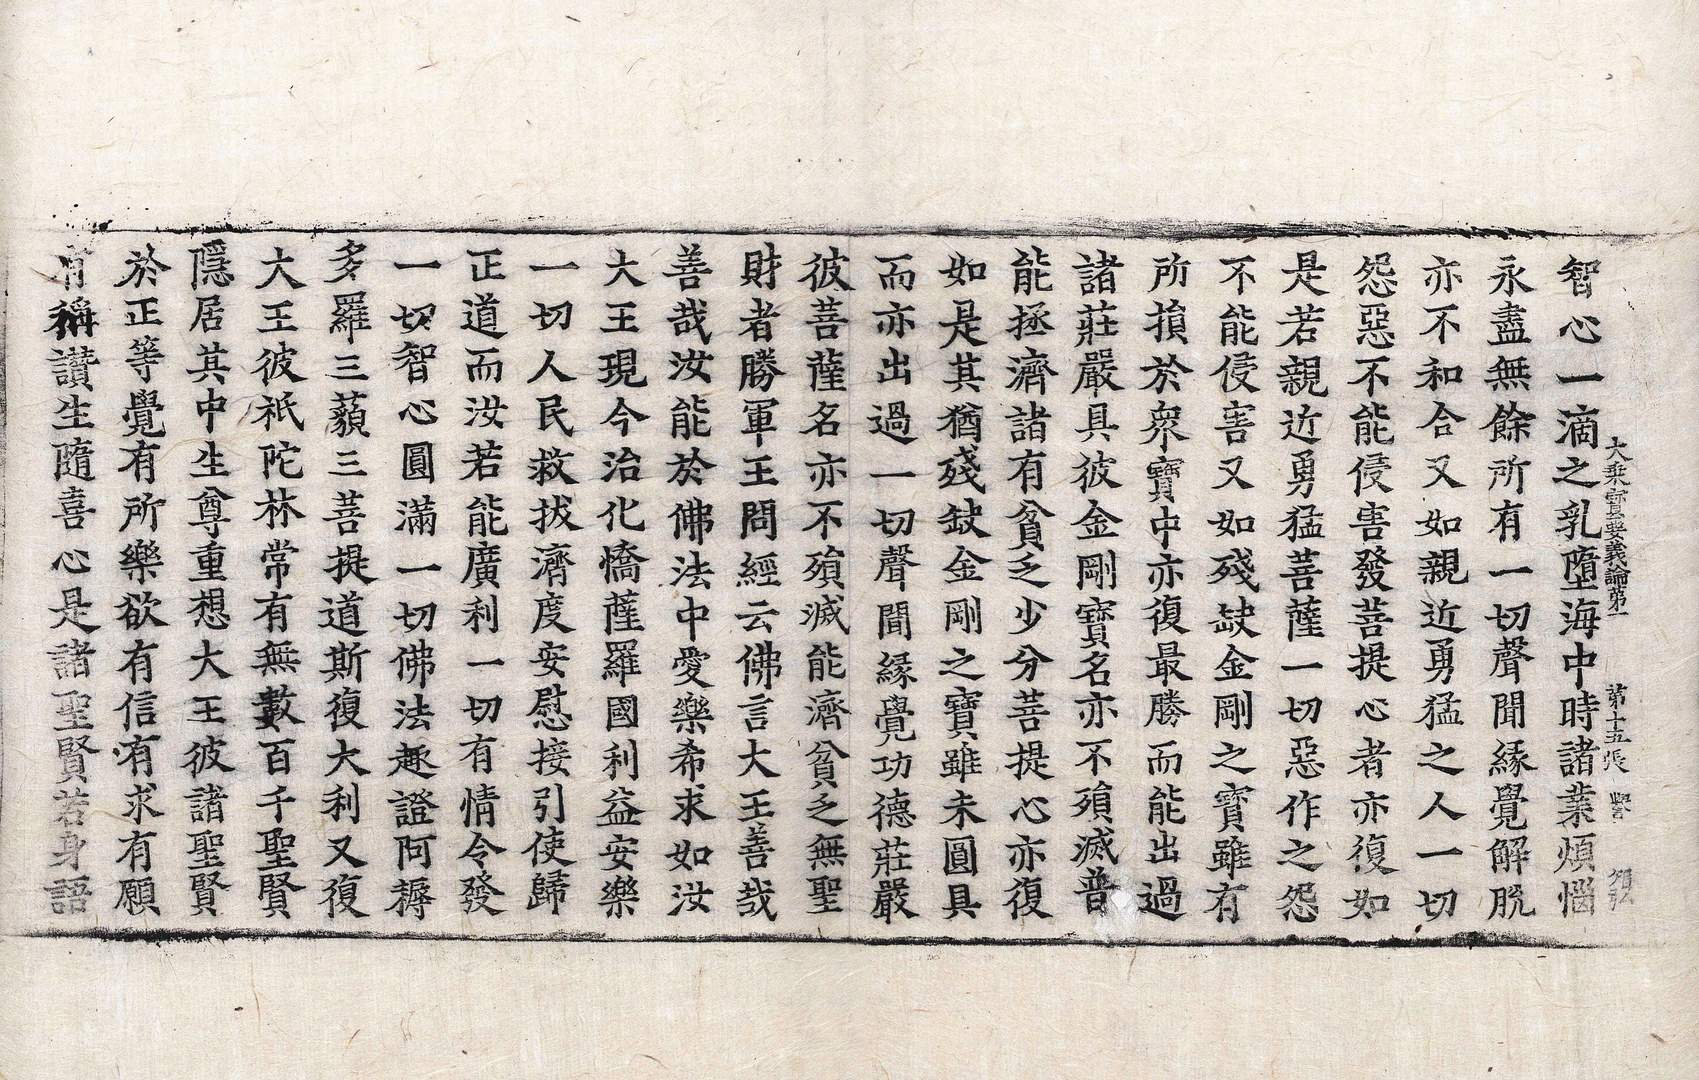 大乘寶要義論第一 第十五張 譽
智心一滴之乳墮海中時諸業煩惱
永盡無餘所有一切聲聞緣覺解脫
亦不和合又如親近勇猛之人一切
怨惡不能侵害發菩提心者亦復如
是若親近勇猛菩薩一切惡作之怨
不能侵害又如殘缺金剛之寶雖有
所損於衆寶中亦復最勝而能出過
諸莊嚴具彼金剛寶名亦不殞滅普
能拯濟諸有貧乏少分菩提心亦復
如是其猶殘缺金剛之寶雖未圓具
而亦出過一切聲聞緣覺功德莊嚴
彼菩薩名亦不殞滅能濟貧乏無聖
財者勝軍王問經云佛言大王善哉
善哉汝能於佛法中愛樂希求如汝
大王現今治化憍薩羅國利益安樂
一切人民救拔濟度安慰接引使歸
正道而汝若能廣利一切有情令發
一切智心圓滿一切佛法趣證阿耨
多羅三藐三菩提道斯復大利又復
大王彼祇陀林常有無數百千聖賢
隱居其中生尊重想大王彼諸聖賢
於正等覺有所樂欲有信有求有願
有稱讚生隨喜心是諸聖賢若身語